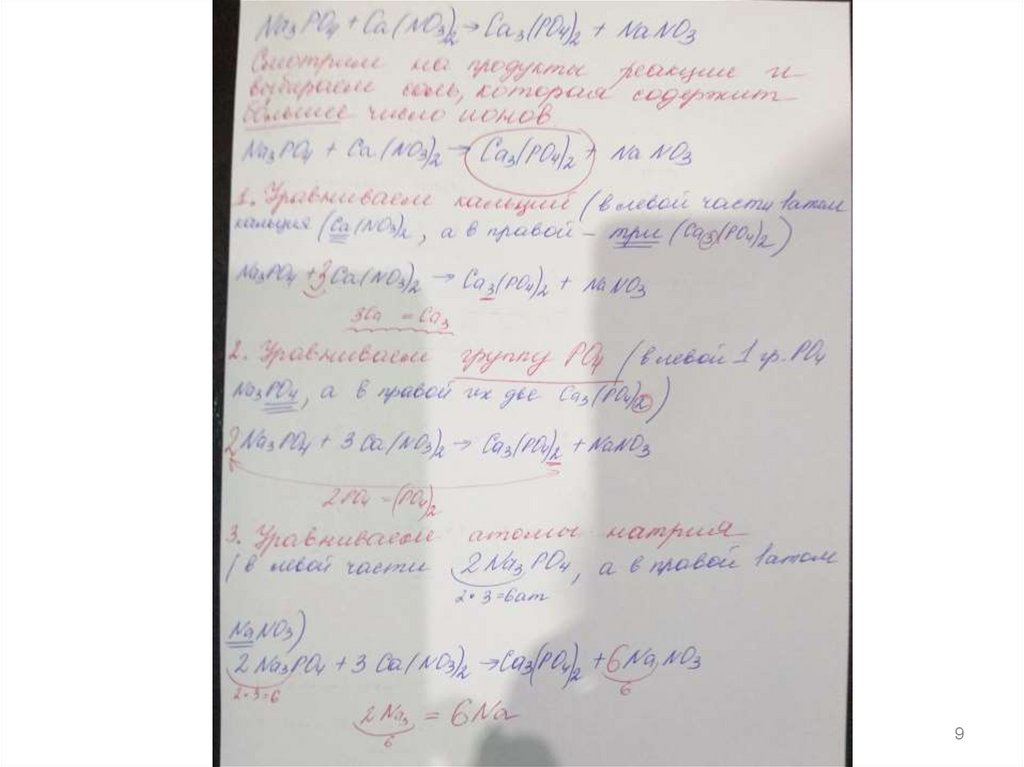 Na3PO4 + Ca(NO3)2 → Ca3(PO4)2 + NaNO3
Смотрим на продукты реакции и
выбираем соль, которая содержит
большее число ионов
Na3PO4 + Ca(NO3)2 → Ca3(PO4)2 + NaNO3
1. Уравниваем кальций (в левой части 1 атом
кальция (Ca(NO3)2, а в правой – три (Ca3(PO4)2)
Na3PO4 + 3Ca(NO3)2 → Ca3(PO4)2 + NaNO3
3Ca = Ca3
2. Уравниваем группу PO4 (в левой 1 гр. PO4
Na3PO4, а в правой их две Ca3(PO4)2)
2Na3PO4 + 3Ca(NO3)2 → Ca3(PO4)2 + NaNO3
2PO4 = (PO4)2
3. Уравниваем атомы натрия
(в левой части 2Na3PO4, а в правой 1 атом
2·3=6ат
NaNO3)
2Na3PO4 + 3Ca(NO3)2 → Ca3(PO4)2 + 6NaNO3
2·3=6 6
2Na3 = 6Na
6
9